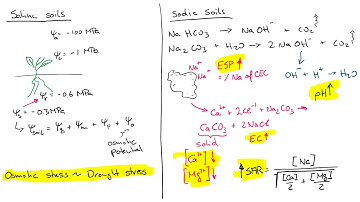 Saline soils
Ψa = -100 MPa
ΨL = -1 MPa
Ψr = -0.6 MPa
Ψs = -0.3 MPa
↳ Ψsoil = Ψg + Ψm + Ψp + Ψo
osmotic
potential
Osmotic stress ~ Drought stress
Sodic soils
NaHCO3 → NaOH⁻ + CO2↑
Na2CO3 + H2O → 2 NaOH⁻ + CO2↑
Na⁺ ESP↑
Na⁺ = % Na of CEC
OH⁻ + H⁺ → H2O
pH↑
Ca²⁺ + 2Cl⁻ + Na2CO3 →
CaCO3 + 2NaCl
solid EC↑
[Ca²⁺]↓
[Mg²⁺]↓
↑SAR = [Na] / √([Ca]/2 + [Mg]/2)